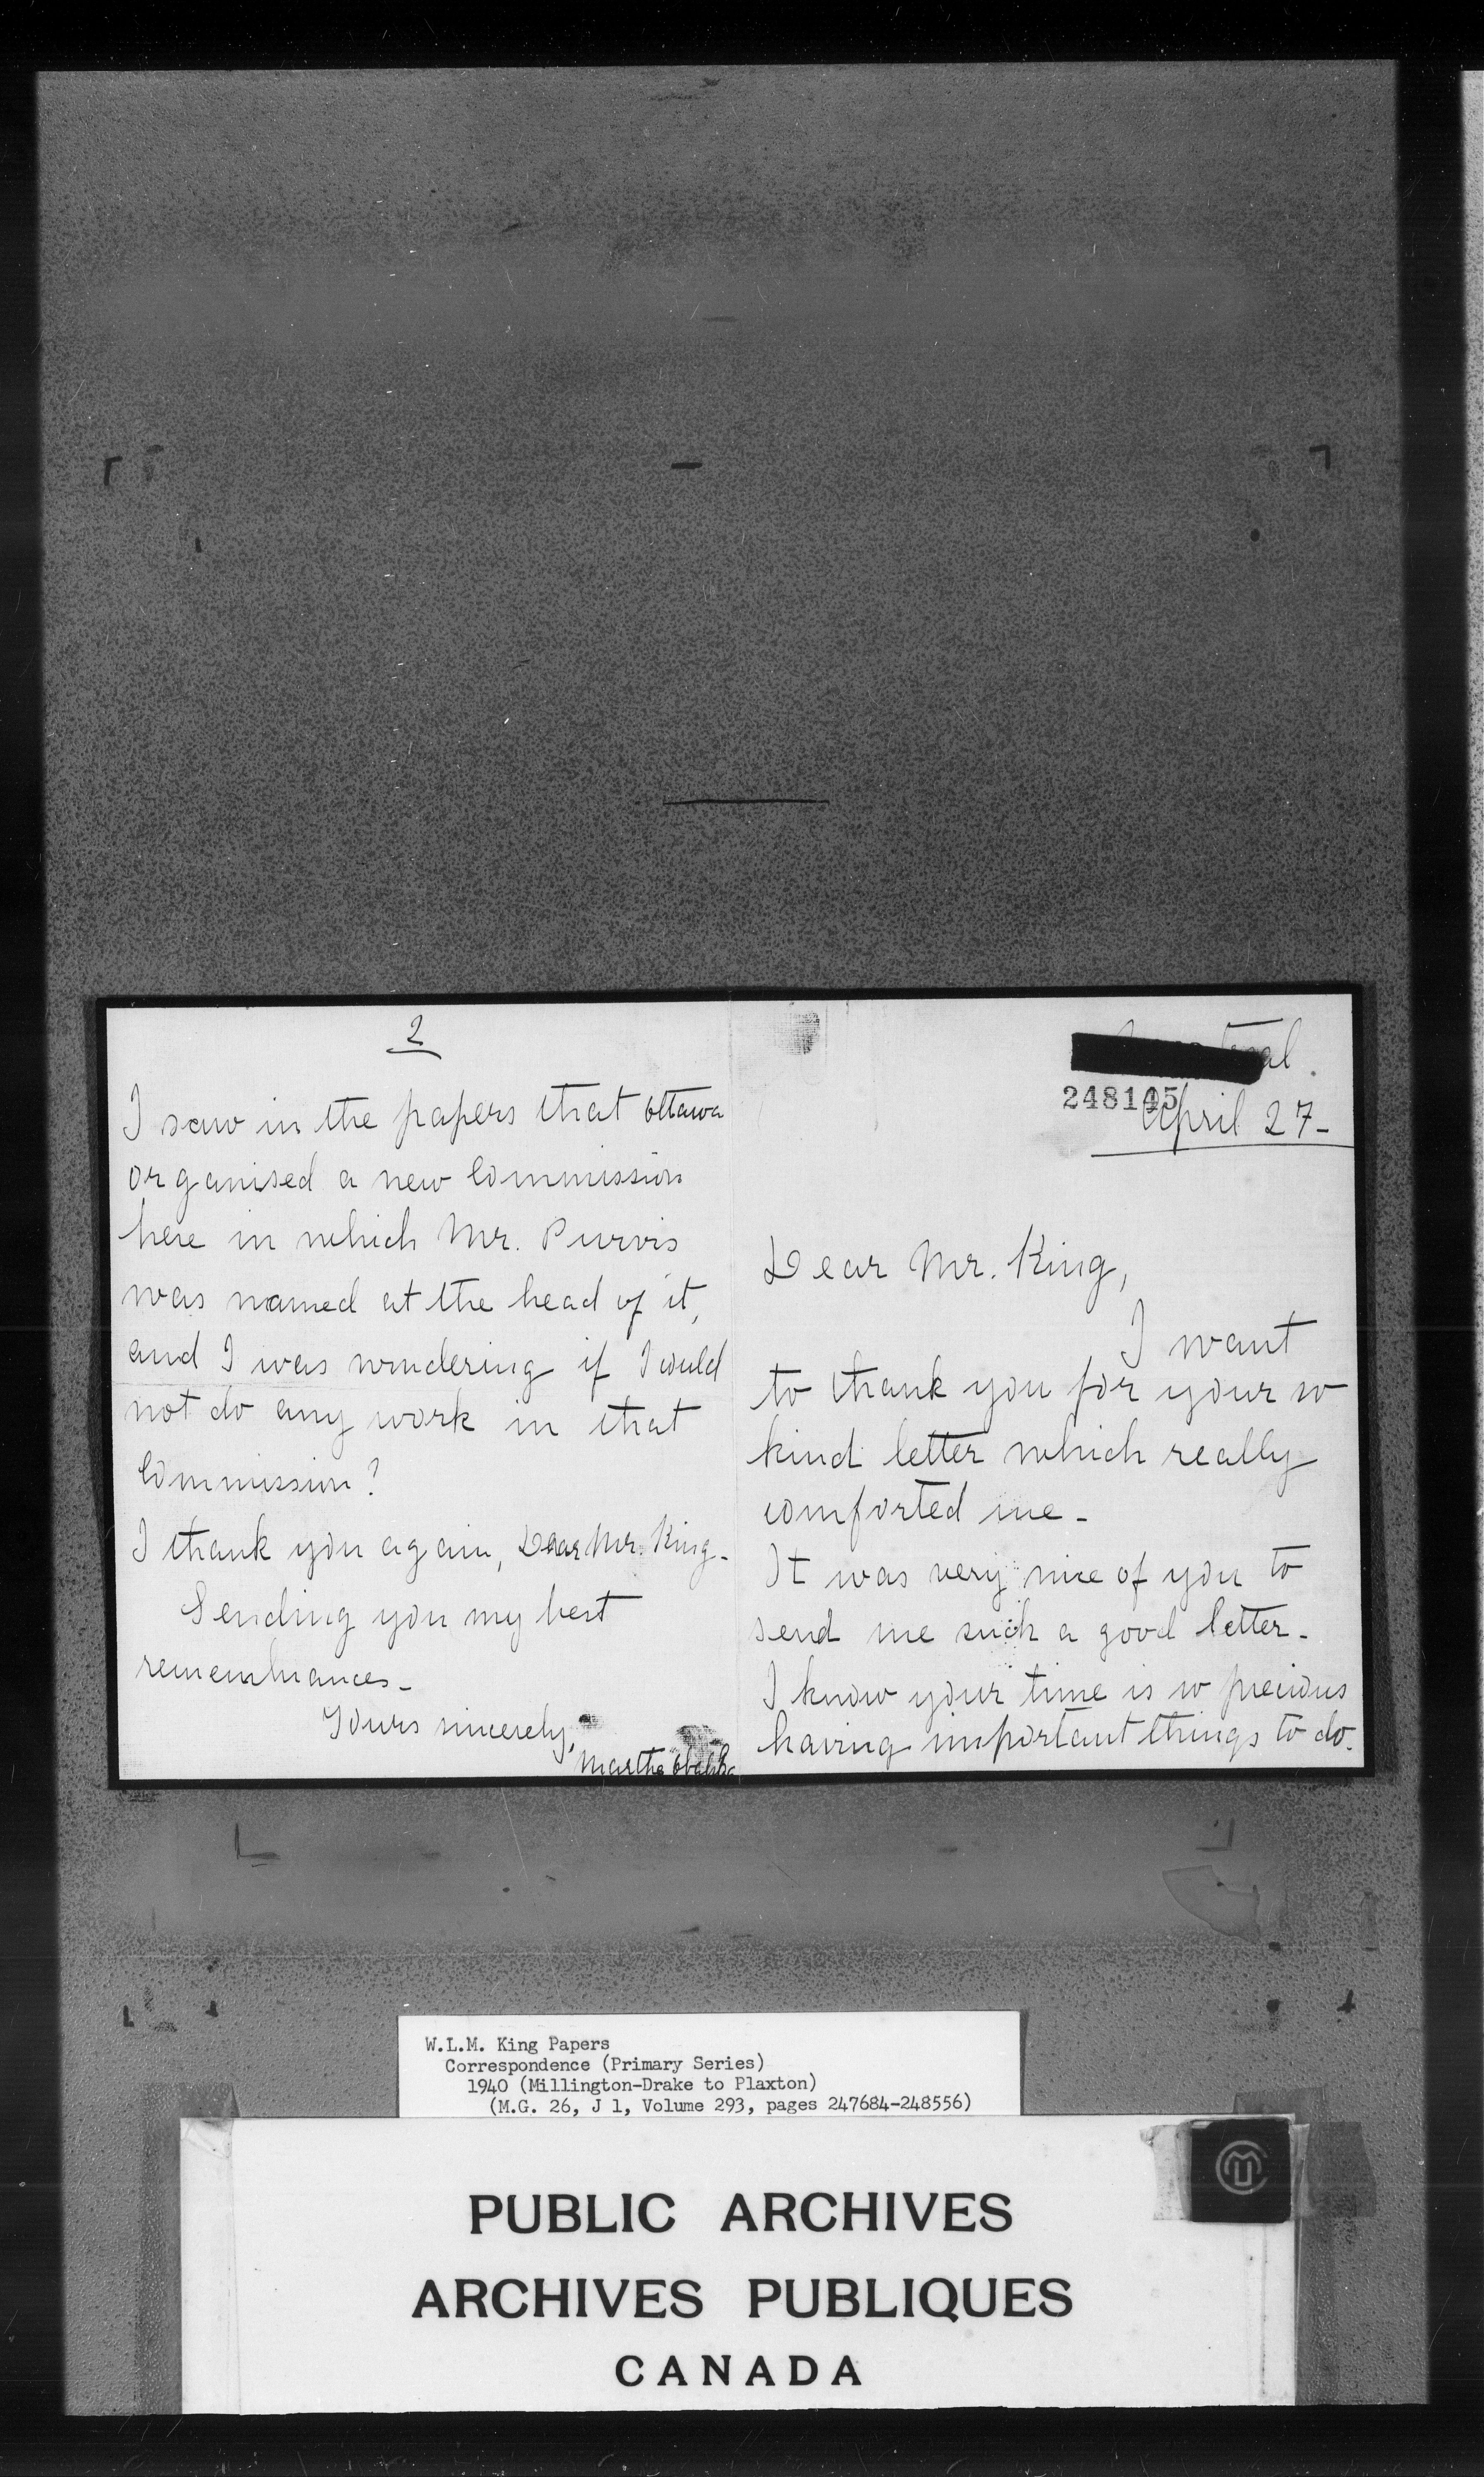 248105
April 27-
Dear Mr. King,
I want
to thank you for your so
kind letter which really
comforted me-
It was very nice of you to
send me such a good letter-
I know your time is so precious
having important things to do.
2
I saw in the papers that Ottawa
organised a new Commission
here in which Mr. Purvis
was named at the head of it,
and I was wondering if I could
not do any work in that
Commission?
I thank you again, Dear Mr. King-
Sending you my best
remembrances-
Yours sincerely,
Marthe
W.L.M. King Papers
Correspondence (Primary Series)
1940 (Millington-Drake to Plaxton)
(M.G. 26, J 1, Volume 293, pages 247684-248556)
PUBLIC ARCHIVES
ARCHIVES PUBLIQUES
CANADA